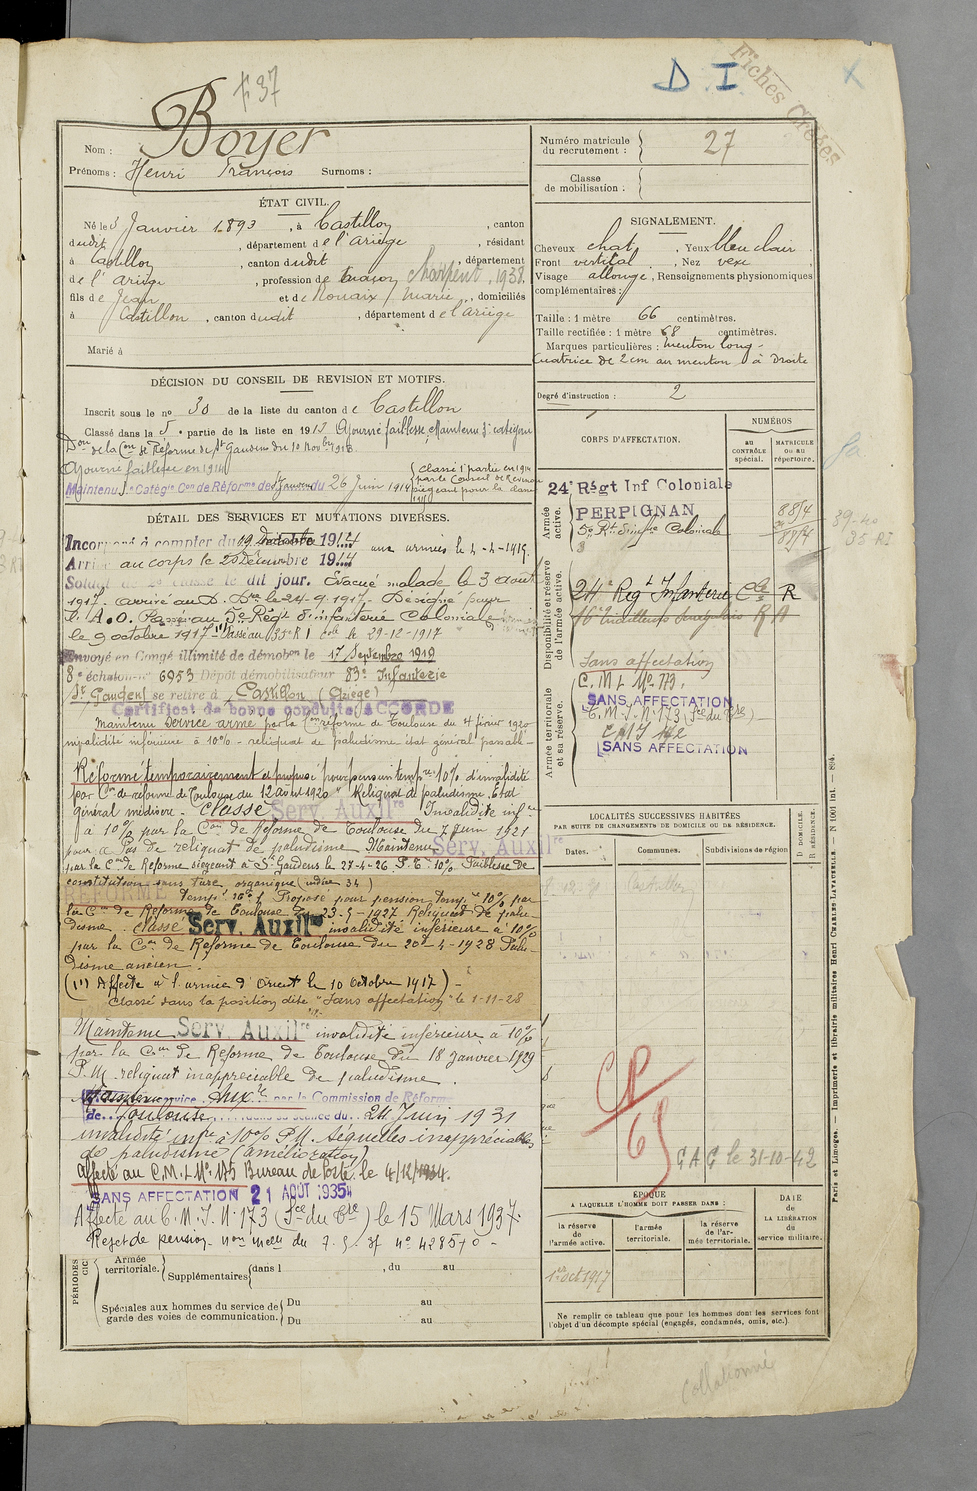 F 37
D. I.
Fiches Créées
Nom : Boyer
Prénoms : Henri François Surnoms :
Numéro matricule
du recrutement : 27
Classe
de mobilisation :
ÉTAT CIVIL.
Né le 3 Janvier 1893, à Castillon, canton
dudit, département de l'Ariège, résidant
à Castillon, canton dudit, département
de l'Ariège, profession de maçon Charpent. 1938.
fils de Jean et de Rouaix Marie, domiciliés
à Castillon, canton dudit, département de l'Ariège
Marié à
SIGNALEMENT.
Cheveux chat. , Yeux bleu clair
Front vertical , Nez vexe
Visage allongé, Renseignements physionomiques
complémentaires :
Taille : 1 mètre 66 centimètres.
Taille rectifiée : 1 mètre 68 centimètres.
Marques particulières : menton long -
Cicatrice de 2cm au menton à Droite
Degré d'instruction : 2
DÉCISION DU CONSEIL DE REVISION ET MOTIFS.
Inscrit sous le no 30 de la liste du canton de Castillon
Classé dans la 5e partie de la liste en 1913 Ajourné faiblesse, Maintenu
Don de la Con de Réforme de St Gaudens du 10 Novbre 1913.
Ajourné faiblesse en 1914
Classé 1e partie en 1914
par le Conseil de Revision
siégeant pour la classe
Con de Réforme de du 26 Juin 1914
DÉTAIL DES SERVICES ET MUTATIONS DIVERSES.
Incorporé à compter du 1914 aux armées le 4-4-1915.
Arrivé au corps le 20 Décembre 1914
Soldat de 2e classe le dit jour. Evacué malade le 3 août
1917. arrivé au D. le 24-9-1917 - Désigné pour
l'A.O. Passé au 5e Régt d'infanterie Coloniale
le 9 octobre 1917 (1) Passé au 35e R I Cole le 29-12-1917
Envoyé en Congé illimité de démobon le 17 Septembre 1919
8e échelon no 6953 Dépôt démobilisateur 83e Infanterie
St Gaudens se retire à Castillon (Ariège)
Certificat de bonne conduite ACCORDÉ
Maintenu Service armé par la Con réforme de Toulouse du 4 février 1920
invalidité inférieure à 10% - reliquat de paludisme état général passable -
Réformé temporairement et proposé pour pension tempre 10% d'invalidité
par Con de réforme de Toulouse du 12 août 1920 "Reliquat de paludisme. Etat
général médiocre. Classé Serv. Auxilre Invalidité infre
à 10% par la Con de Réforme de Toulouse du 7 Juin 1921
pour Pas de reliquat de paludisme. Maintenu Serv. Auxilre
par la Con de Réforme siégeant à St Gaudens le 27-4-26. P.T. 10% Faiblesse de
constitution sans tare organique (indice 34)
RÉFORMÉ Tempre Proposé pour pension Tempre 10% par
la Con de Réforme de Toulouse du 23-5-1927 Reliquat de palu-
disme. Classé Serv. Auxilre invalidité inférieure à 10%
par la Con de Réforme de Toulouse du 20-4-1928 Palu-
disme ancien.
(1) Affecté à l'armée d'Orient le 10 Octobre 1917) -
Classé dans la position dite "Sans affectation" le 1-11-28
Maintenu Serv. Auxilre invalidité inférieure à 10%
par la Con de Réforme de Toulouse du 18 Janvier 1929
P.M. reliquat inappréciable de paludisme.
Maintenu service Auxre par la Commission de Réforme
de Toulouse dans sa séance du 24 Juin 1931
invalidité infre à 10% P.M. Séquelles inappréciables
de paludisme (amélioration)
affecté au C.M.I. No 175 Bureau de Poste. le 4/12/1934.
SANS AFFECTATION 21 AOUT 1935
Affecté au C.M.I. N. 173 (Sce du Gre) le 15 Mars 1937.
Rejet de pension. du 7.5.37 no 428570 -
PÉRIODES
Armée
territoriale. Supplémentaires dans l , du au
Spéciales aux hommes du service de
garde des voies de communication. Du au
Du au
CORPS D'AFFECTATION.
NUMÉROS
au
CONTRÔLE
spécial.
MATRICULE
ou au
répertoire.
Armée
active.
24e Régt Inf Coloniale
PERPIGNAN 8874
5e Rt d'Infie Coloniale 8874
39-40
35 RI
Disponibilité et réserve
de l'armée active.
24e Régt Infanterie Cle R
16e Tirailleurs Sénégalais R A
Armée territoriale
et sa réserve.
Sans affectation
C. M. I. No 173.
SANS AFFECTATION
C. M. I. N. 173 (Sce du Gre) -
SANS AFFECTATION
LOCALITÉS SUCCESSIVES HABITÉES
PAR SUITE DE CHANGEMENTS DE DOMICILE OU DE RÉSIDENCE.
Dates.
Communes.
Subdivisions de région
D DOMICILE.
R RÉSIDENCE.
Castillon
CP
69
CAC le 31-10-42
ÉPOQUE
A LAQUELLE L'HOMME DOIT PASSER DANS :
la réserve
de
l'armée active.
l'armée
territoriale.
la réserve
de l'ar-
mée territoriale.
DATE
de
LA LIBÉRATION
du
service militaire.
1er oct 1917
Ne remplir ce tableau que pour les hommes dont les services font
l'objet d'un décompte spécial (engagés, condamnés, omis, etc.).
Paris et Limoges. — Imprimerie et librairie militaires Henri CHARLES-LAVAUZELLE. — N 1001 int. — 894.
Collationné